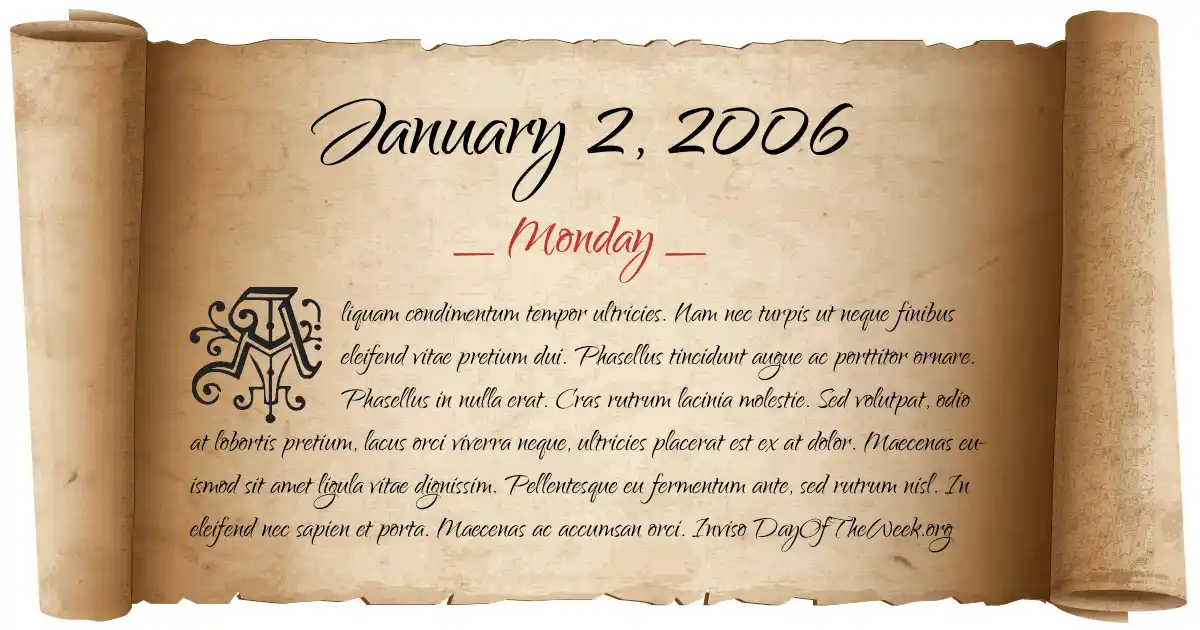 January 2, 2006
__ Monday __
Aliquam condimentum tempor ultricies. Nam nec turpis ut neque finibus
eleifend vitae pretium dui. Phasellus tincidunt augue ac porttitor ornare.
Phasellus in nulla erat. Cras rutrum lacinia molestie. Sed volutpat, odio
at lobortis pretium, lacus orci viverra neque, ultricies placerat est ex at dolor. Maecenas eu-
ismod sit amet ligula vitae dignissim. Pellentesque eu fermentum ante, sed rutrum nisl. In
eleifend nec sapien et porta. Maecenas ac accumsan orci. Inviso DayOfTheWeek.org